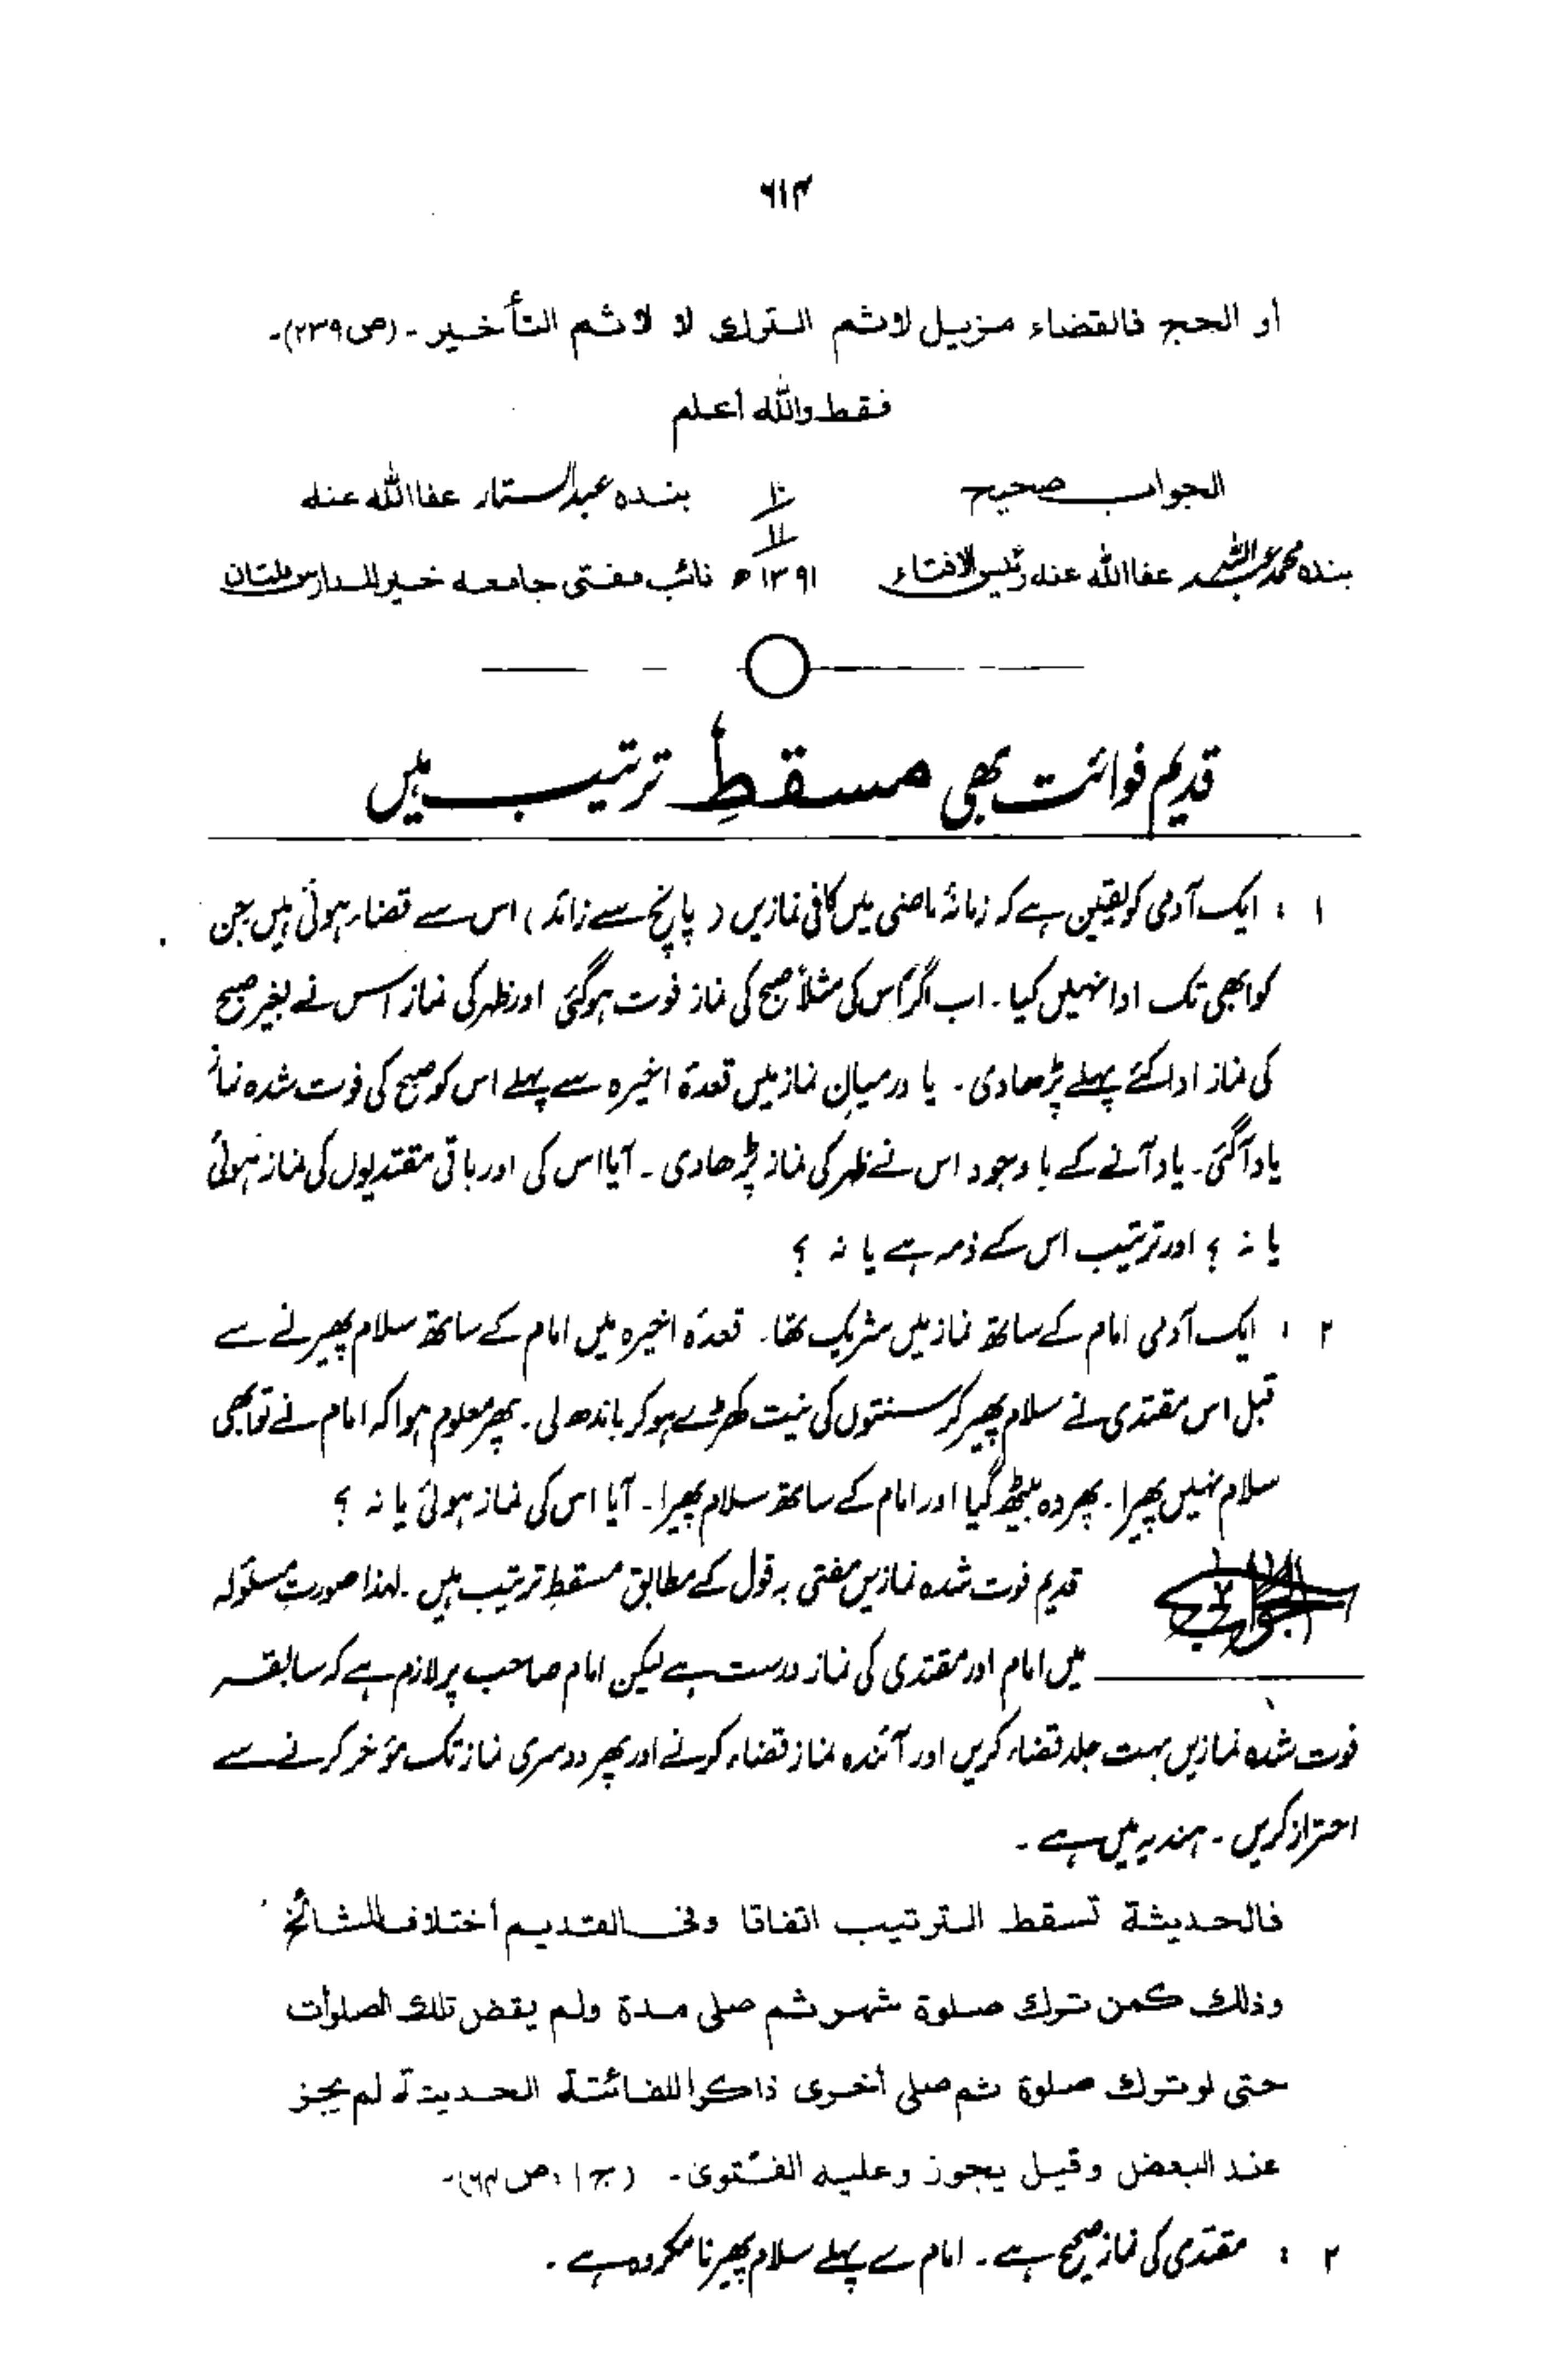 ۶۱۴
أو الحج فالقضاء مزيل لاثم الترك لا لاثم التأخير ـ (ص۲۳۹)ـ
فقط والله أعلم
الجواب صحيح ۱۰ بنده عبدالستار عفا الله عنه
۱۱
بنده محمد عبد الله عفا الله عنه رئيس الافتاء ۱۳۹۱ھ نائب مفتی جامعه خير المدارس ملتان
قدیم فوائت بھی مسقطِ ترتیب ہیں
۱ : ایک آدمی کو یقین ہے کہ زمانۂ ماضی میں کافی نمازیں (پانچ سے زائد) اس سے قضاء ہوئی ہیں جن
کو ابھی تک ادا نہیں کیا۔ اب اگر اس کی مثلاً صبح کی نماز فوت ہوگئی اور ظہر کی نماز اس نے بغیر صبح
کی نماز ادا کئے پہلے پڑھا دی۔ یا درمیانِ نماز میں قعدۂ اخیرہ سے پہلے اس کو صبح کی فوت شدہ نماز
یاد آگئی۔ یاد آنے کے باوجود اس نے ظہر کی نماز پڑھا دی۔ آیا اس کی اور باقی مقتدیوں کی نماز ہوئی
یا نہ ؟ اور ترتیب اس کے ذمہ ہے یا نہ ؟
۲ : ایک آدمی امام کے ساتھ نماز میں شریک تھا۔ قعدۂ اخیرہ میں امام کے ساتھ سلام پھیرنے سے
قبل اس مقتدی نے سلام پھیر کر سنتوں کی نیت کھڑے ہو کر باندھ لی۔ پھر معلوم ہوا کہ امام نے تو ابھی
سلام نہیں پھیرا۔ پھر وہ بیٹھ گیا اور امام کے ساتھ سلام پھیرا۔ آیا اس کی نماز ہوئی یا نہ ؟
الجواب قدیم فوت شدہ نمازیں مفتیٰ بہ قول کے مطابق مسقطِ ترتیب ہیں۔ لہٰذا صورتِ مسئولہ
میں امام اور مقتدی کی نماز درست ہے لیکن امام صاحب پر لازم ہے کہ سابقہ
فوت شدہ نمازیں بہت جلد قضاء کریں اور آئندہ نماز قضاء کرنے اور پھر دوسری نماز تک مؤخر کرنے سے
احتراز کریں۔ ہندیہ میں ہے۔
فالحديثة تسقط الترتيب اتفاقا وفی القديم أختلاف المشائخ
وذلك كمن ترك صلوة شهر ثم صلی مدة ولم يقض تلك الصلوات
حتی لو ترك صلوة ثم صلی أخری ذاكرا للفائتة الحديثة لم يجز
عند البعض وقيل يجوز وعليه الفتوی۔ (ج۱، ص۶۴)۔
۲ : مقتدی کی نماز صحیح ہے۔ امام سے پہلے سلام پھیرنا مکروہ ہے۔